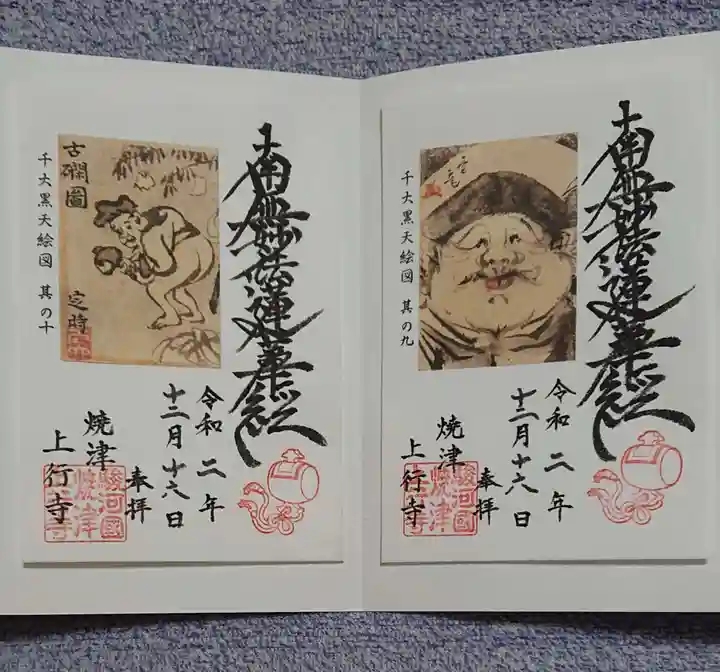 南無妙法蓮華経
千大黒天絵図 其の九
令和二年
十二月十六日
奉拝
焼津
上行寺
駿河國
焼津
南無妙法蓮華経
古礀圖
定時
千大黒天絵図 其の十
令和二年
十二月十六日
奉拝
焼津
上行寺
駿河國
焼津